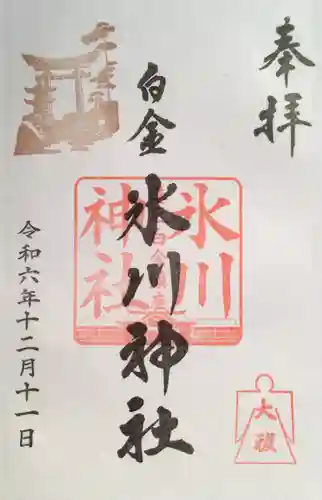 奉拝
白金
氷川神社
氷川
神社
大祓
令和六年十二月十一日